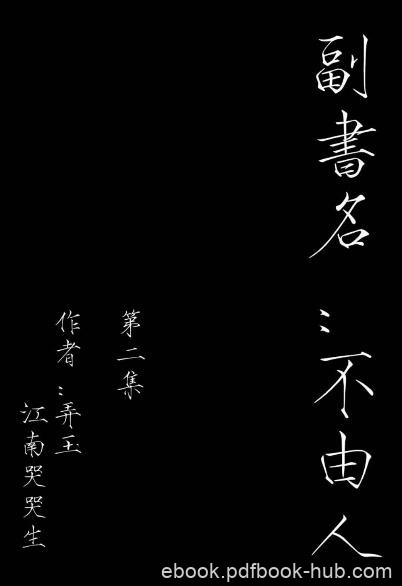 副書名：不由人
第二集
作者：弄玉
江南哭哭生
ebook.pdfbook-hub.com